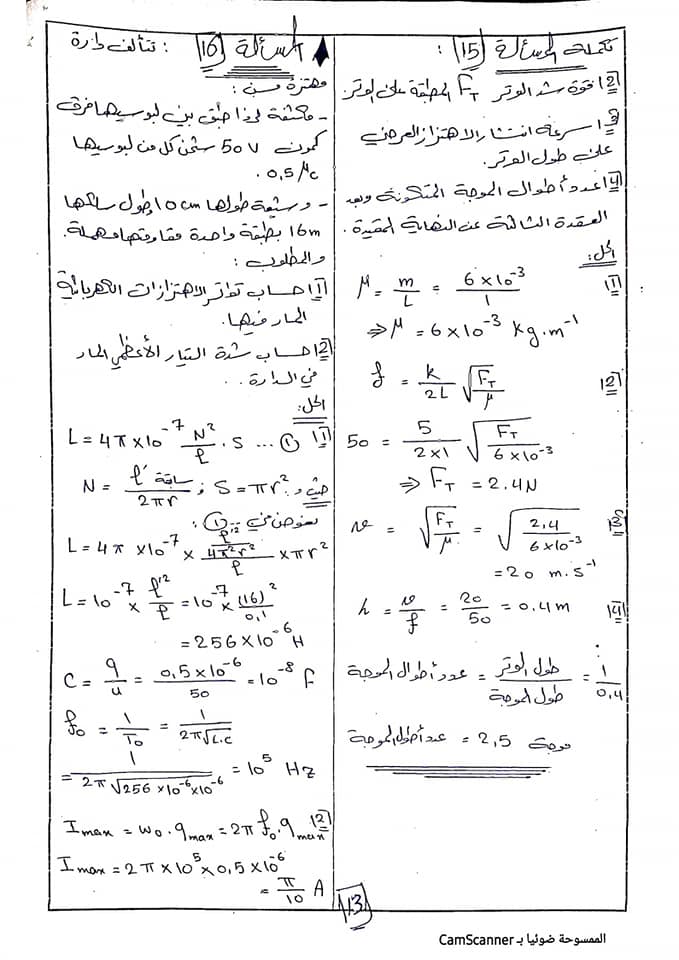 تكملة المسألة (15) :
2) قوة شد الوتر F_T المطبقة على الوتر
3) سرعة انتشار الاهتزاز العرضي
على طول الوتر.
4) عدد أطوال الموجة المتكونة وبعد
العقدة الثالثة عن النهاية المقيدة.
الحل:
1) μ = m/L = 6×10⁻³/1
⇒ μ = 6×10⁻³ kg.m⁻¹
2) f = k/2L √(F_T/μ)
50 = 5/2×1 √(F_T/6×10⁻³)
⇒ F_T = 2.4N
3) v = √(F_T/μ) = √(2,4/6×10⁻³)
= 20 m.s⁻¹
4) λ = v/f = 20/50 = 0.4m
عدد أطوال الموجة = طول الوتر/طول الموجة = 1/0,4
عدد أطوال الموجة = 2,5 موجة
المسألة (16) : تتألف دارة
مهتزة من :
- مكثفة إذا طبق بين لبوسيها فرق
كمون 50V شحن كل من لبوسيها
0,5 μc .
- وشيعة طولها 10cm وطول سلكها
16m بطبقة واحدة مقاومتها مهملة.
والمطلوب :
1) حساب تواتر الاهتزازات الكهربائية
المار فيها.
2) حساب شدة التيار الأعظمي المار
في الدارة ..
الحل:
1) L = 4π×10⁻⁷ N²/ℓ . S ... ①
حيث: N = ℓ' سابقة/2πr ; S = πr²
نعوض في ① :
L = 4π ×10⁻⁷ × (ℓ'²/4π²r²)/ℓ × πr²
L = 10⁻⁷ × ℓ'²/ℓ = 10⁻⁷ × (16)²/0,1
= 256×10⁻⁶ H
C = q/u = 0,5×10⁻⁶/50 = 10⁻⁸ F
f₀ = 1/T₀ = 1/2π√L.C
= 1/2π√256×10⁻⁶×10⁻⁶ = 10⁵ Hz
2) Imax = w₀.qmax = 2π f₀.qmax
Imax = 2π×10⁵×0,5×10⁻⁶
= π/10 A
13
الممسوحة ضوئيا بـ CamScanner